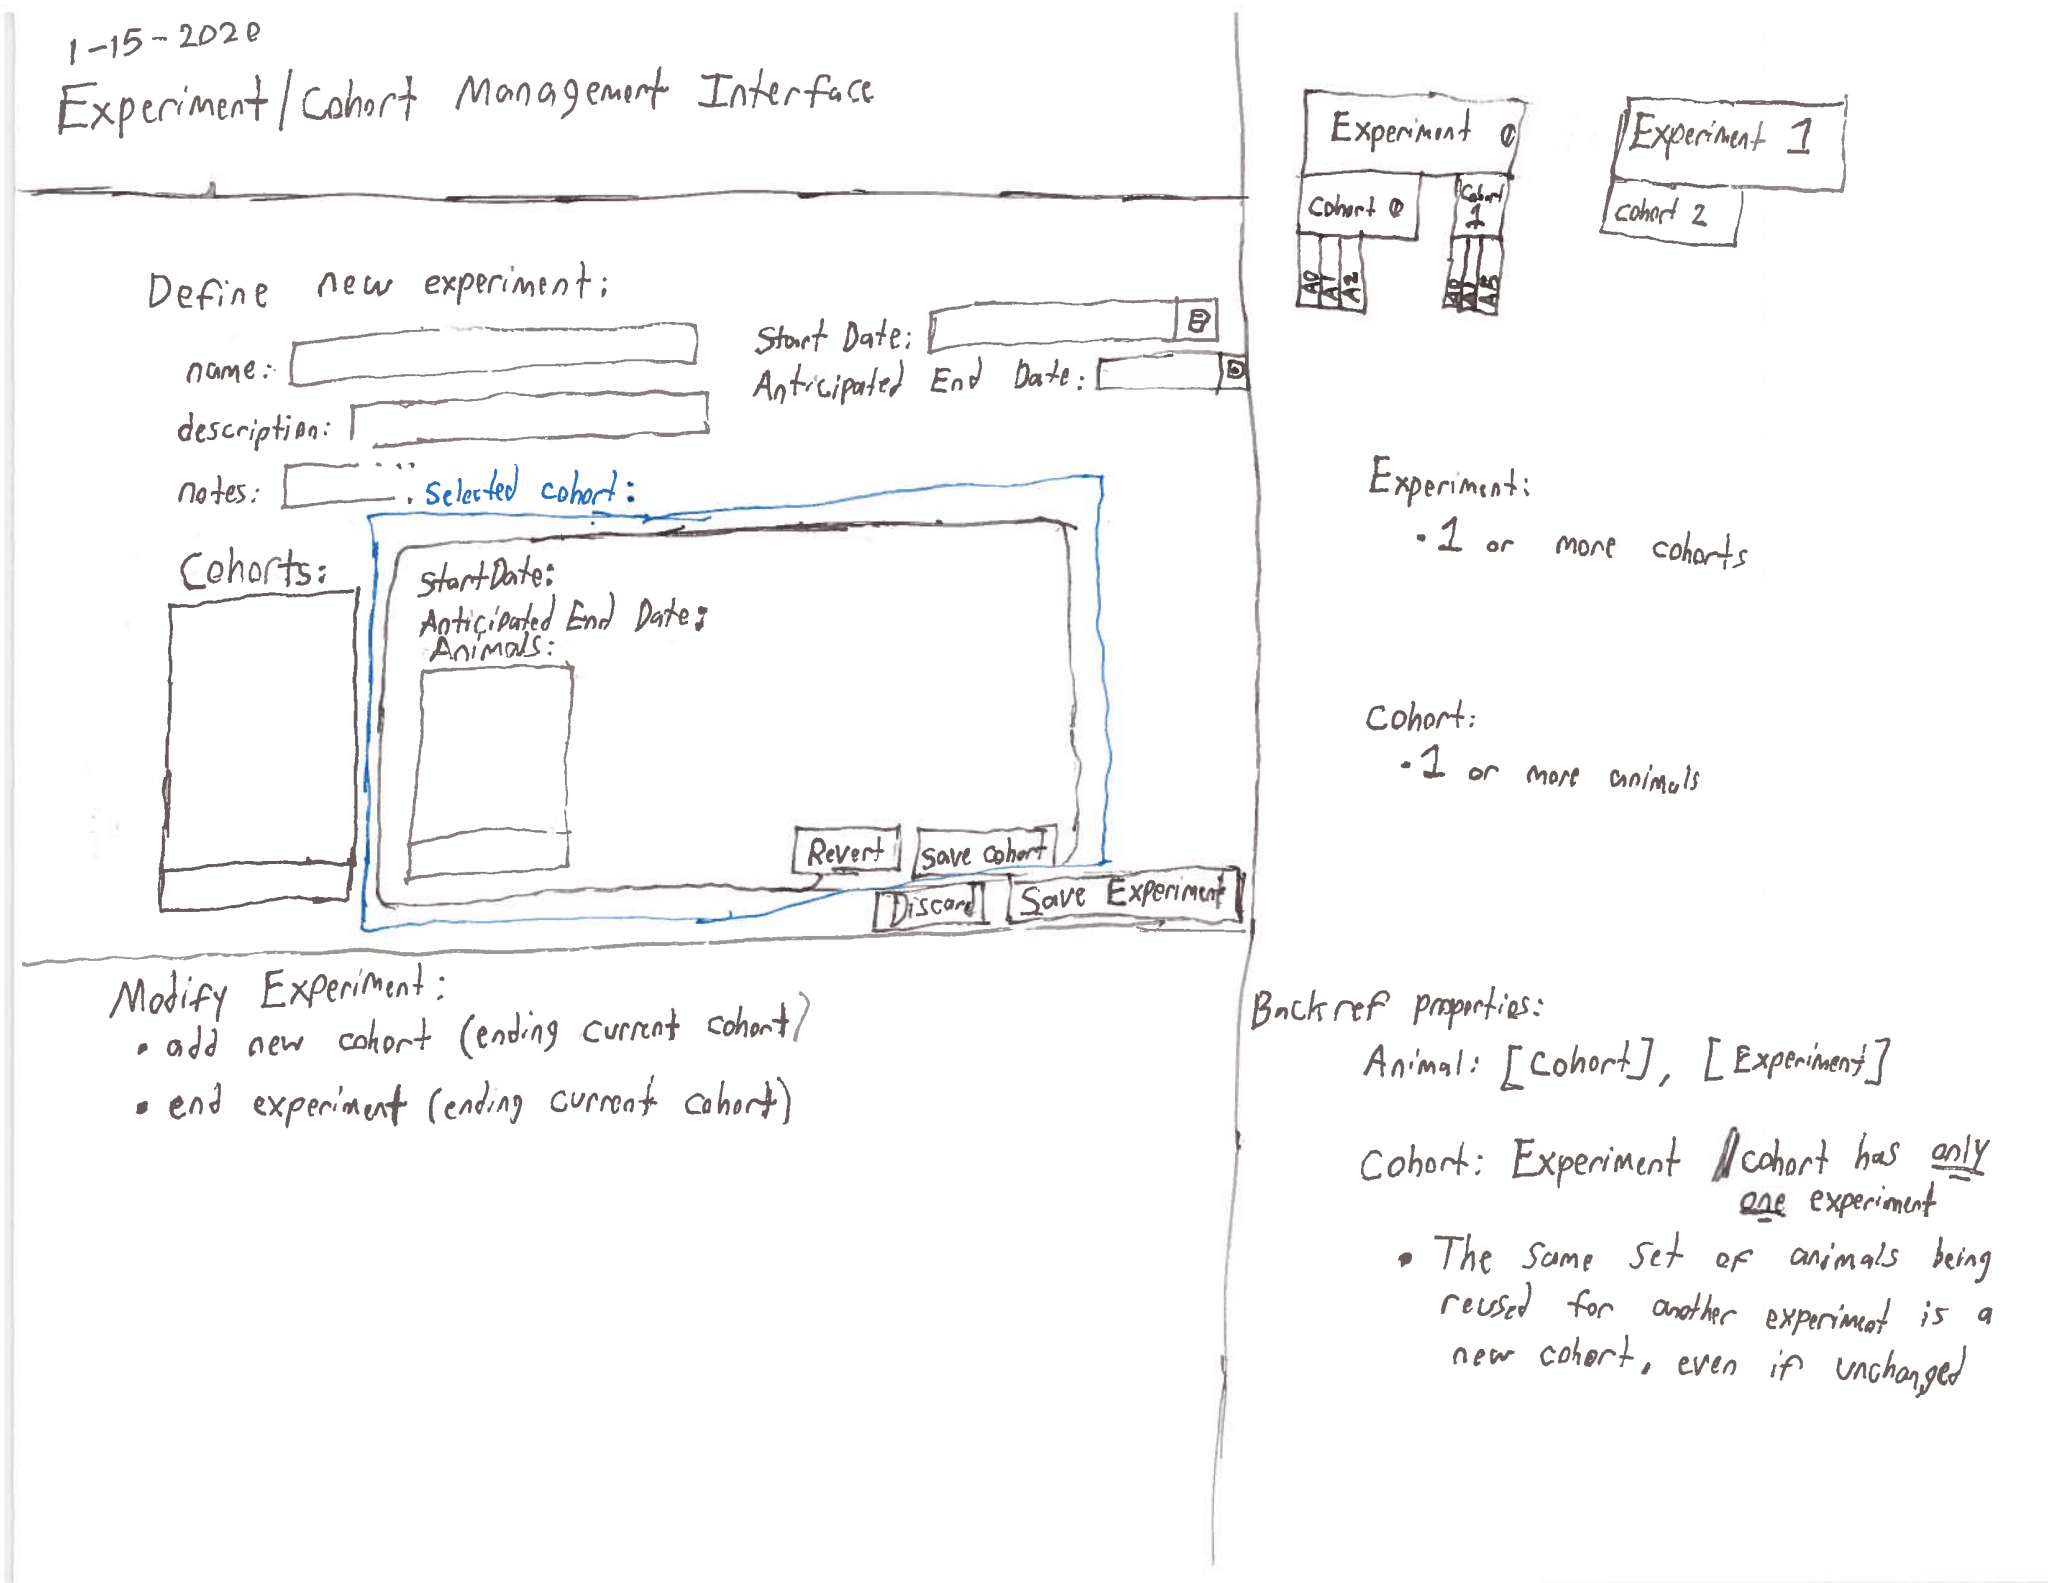 1-15-2020
Experiment/Cohort Management Interface
Define new experiment:
name:
description:
notes:
Start Date:
Anticipated End Date:
Selected cohort:
Cohorts:
Start Date:
Anticipated End Date:
Animals:
Revert
Save cohort
Discard
Save Experiment
Modify Experiment:
• add new cohort (ending current cohort)
• end experiment (ending current cohort)
Experiment 0
Cohort 0
Cohort
1
A0
A1
A2
A0
A1
Experiment 1
cohort 2
Experiment:
• 1 or more cohorts
Cohort:
• 1 or more animals
Backref properties:
Animal: [Cohort], [Experiment]
Cohort: Experiment // cohort has only
one experiment
• The same set of animals being
reused for another experiment is a
new cohort, even if unchanged